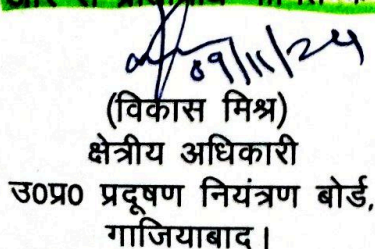 09/11/24
(विकास मिश्र)
क्षेत्रीय अधिकारी
उ0प्र0 प्रदूषण नियंत्रण बोर्ड,
गाजियाबाद।